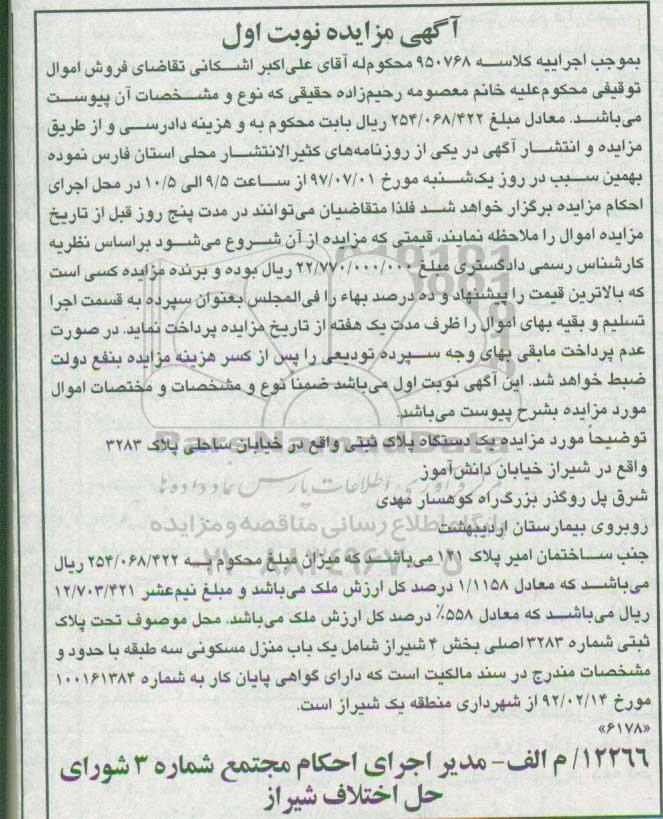 آگهی مزایده نوبت اول
بموجب اجراییه کلاسه ۹۵۰۷۶۸ محکوم‌له آقای علی‌اکبر اشکانی تقاضای فروش اموال
توقیفی محکوم‌علیه خانم معصومه رحیم‌زاده حقیقی که نوع و مشخصات آن پیوست
می‌باشد. معادل مبلغ ۲۵۴/۰۶۸/۴۲۲ ریال بابت محکوم به و هزینه دادرسی و از طریق
مزایده و انتشار آگهی در یکی از روزنامه‌های کثیرالانتشار محلی استان فارس نموده
بهمین سبب در روز یک‌شنبه مورخ ۹۷/۰۷/۰۱ از ساعت ۹/۵ الی ۱۰/۵ در محل اجرای
احکام مزایده برگزار خواهد شد فلذا متقاضیان می‌توانند در مدت پنج روز قبل از تاریخ
مزایده اموال را ملاحظه نمایند. قیمتی که مزایده از آن شروع می‌شود براساس نظریه
کارشناس رسمی دادگستری مبلغ ۲۲/۷۷۰/۰۰۰/۰۰۰ ریال بوده و برنده مزایده کسی است
که بالاترین قیمت را پیشنهاد و ده درصد بهاء را فی‌المجلس بعنوان سپرده به قسمت اجرا
تسلیم و بقیه بهای اموال را ظرف مدت یک هفته از تاریخ مزایده پرداخت نماید. در صورت
عدم پرداخت مابقی بهای وجه سپرده تودیعی را پس از کسر هزینه مزایده بنفع دولت
ضبط خواهد شد. این آگهی نوبت اول می‌باشد ضمنا نوع و مشخصات و مختصات اموال
مورد مزایده بشرح پیوست می‌باشد.
توضیحاً مورد مزایده یک دستگاه پلاک ثبتی واقع در خیابان ساحلی پلاک ۳۲۸۳
واقع در شیراز خیابان دانش‌آموز
شرق پل روگذر بزرگراه کوهسار مهدی
روبروی بیمارستان اردیبهشت
جنب ساختمان امیر پلاک ۱۲۱ می‌باشد که میزان مبلغ محکوم به ۲۵۴/۰۶۸/۴۲۲ ریال
می‌باشد که معادل ۱/۱۱۵۸ درصد کل ارزش ملک می‌باشد و مبلغ نیم‌عشر ۱۲/۷۰۳/۴۲۱
ریال می‌باشد که معادل ۵۵۸٪ درصد کل ارزش ملک می‌باشد. محل موصوف تحت پلاک
ثبتی شماره ۳۲۸۳ اصلی بخش ۴ شیراز شامل یک باب منزل مسکونی سه طبقه با حدود و
مشخصات مندرج در سند مالکیت است که دارای گواهی پایان کار به شماره ۱۰۰۱۶۱۳۸۴
مورخ ۹۲/۰۲/۱۴ از شهرداری منطقه یک شیراز است.
«۶۱۷۸»
۱۲۲۶۶/ م الف- مدیر اجرای احکام مجتمع شماره ۳ شورای
حل اختلاف شیراز
ParsNamadData
مرکز فرآوری اطلاعات پارس نماد داده‌ها
پایگاه اطلاع رسانی مناقصه و مزایده